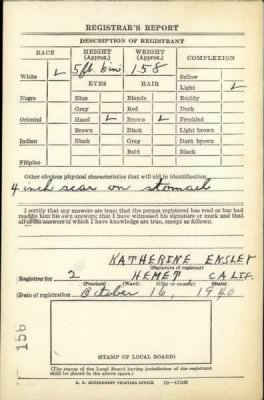 REGISTRAR'S REPORT
DESCRIPTION OF REGISTRANT
RACE HEIGHT (Approx.) WEIGHT (Approx.) COMPLEXION
White 5 ft. 6 in. 158 Sallow
EYES HAIR Light
Negro Blue Blonde Ruddy
Gray Red Dark
Oriental Hazel Brown Freckled
Brown Black Light brown
Indian Black Gray Dark brown
Bald Black
Filipino
Other obvious physical characteristics that will aid in identification
4 inch scar on stomach
I certify that my answers are true; that the person registered has read or has had
read to him his own answers; that I have witnessed his signature or mark and that
all of his answers of which I have knowledge are true, except as follows:
KATHERINE ENSLEY
(Signature of registrar)
Registrar for 2 HEMET, CALIF.
(Precinct) (Ward) (City or county) (State)
Date of registration October 16, 1940
156
(STAMP OF LOCAL BOARD)
(The stamp of the Local Board having jurisdiction of the registrant
shall be placed in the above space.)
U. S. GOVERNMENT PRINTING OFFICE